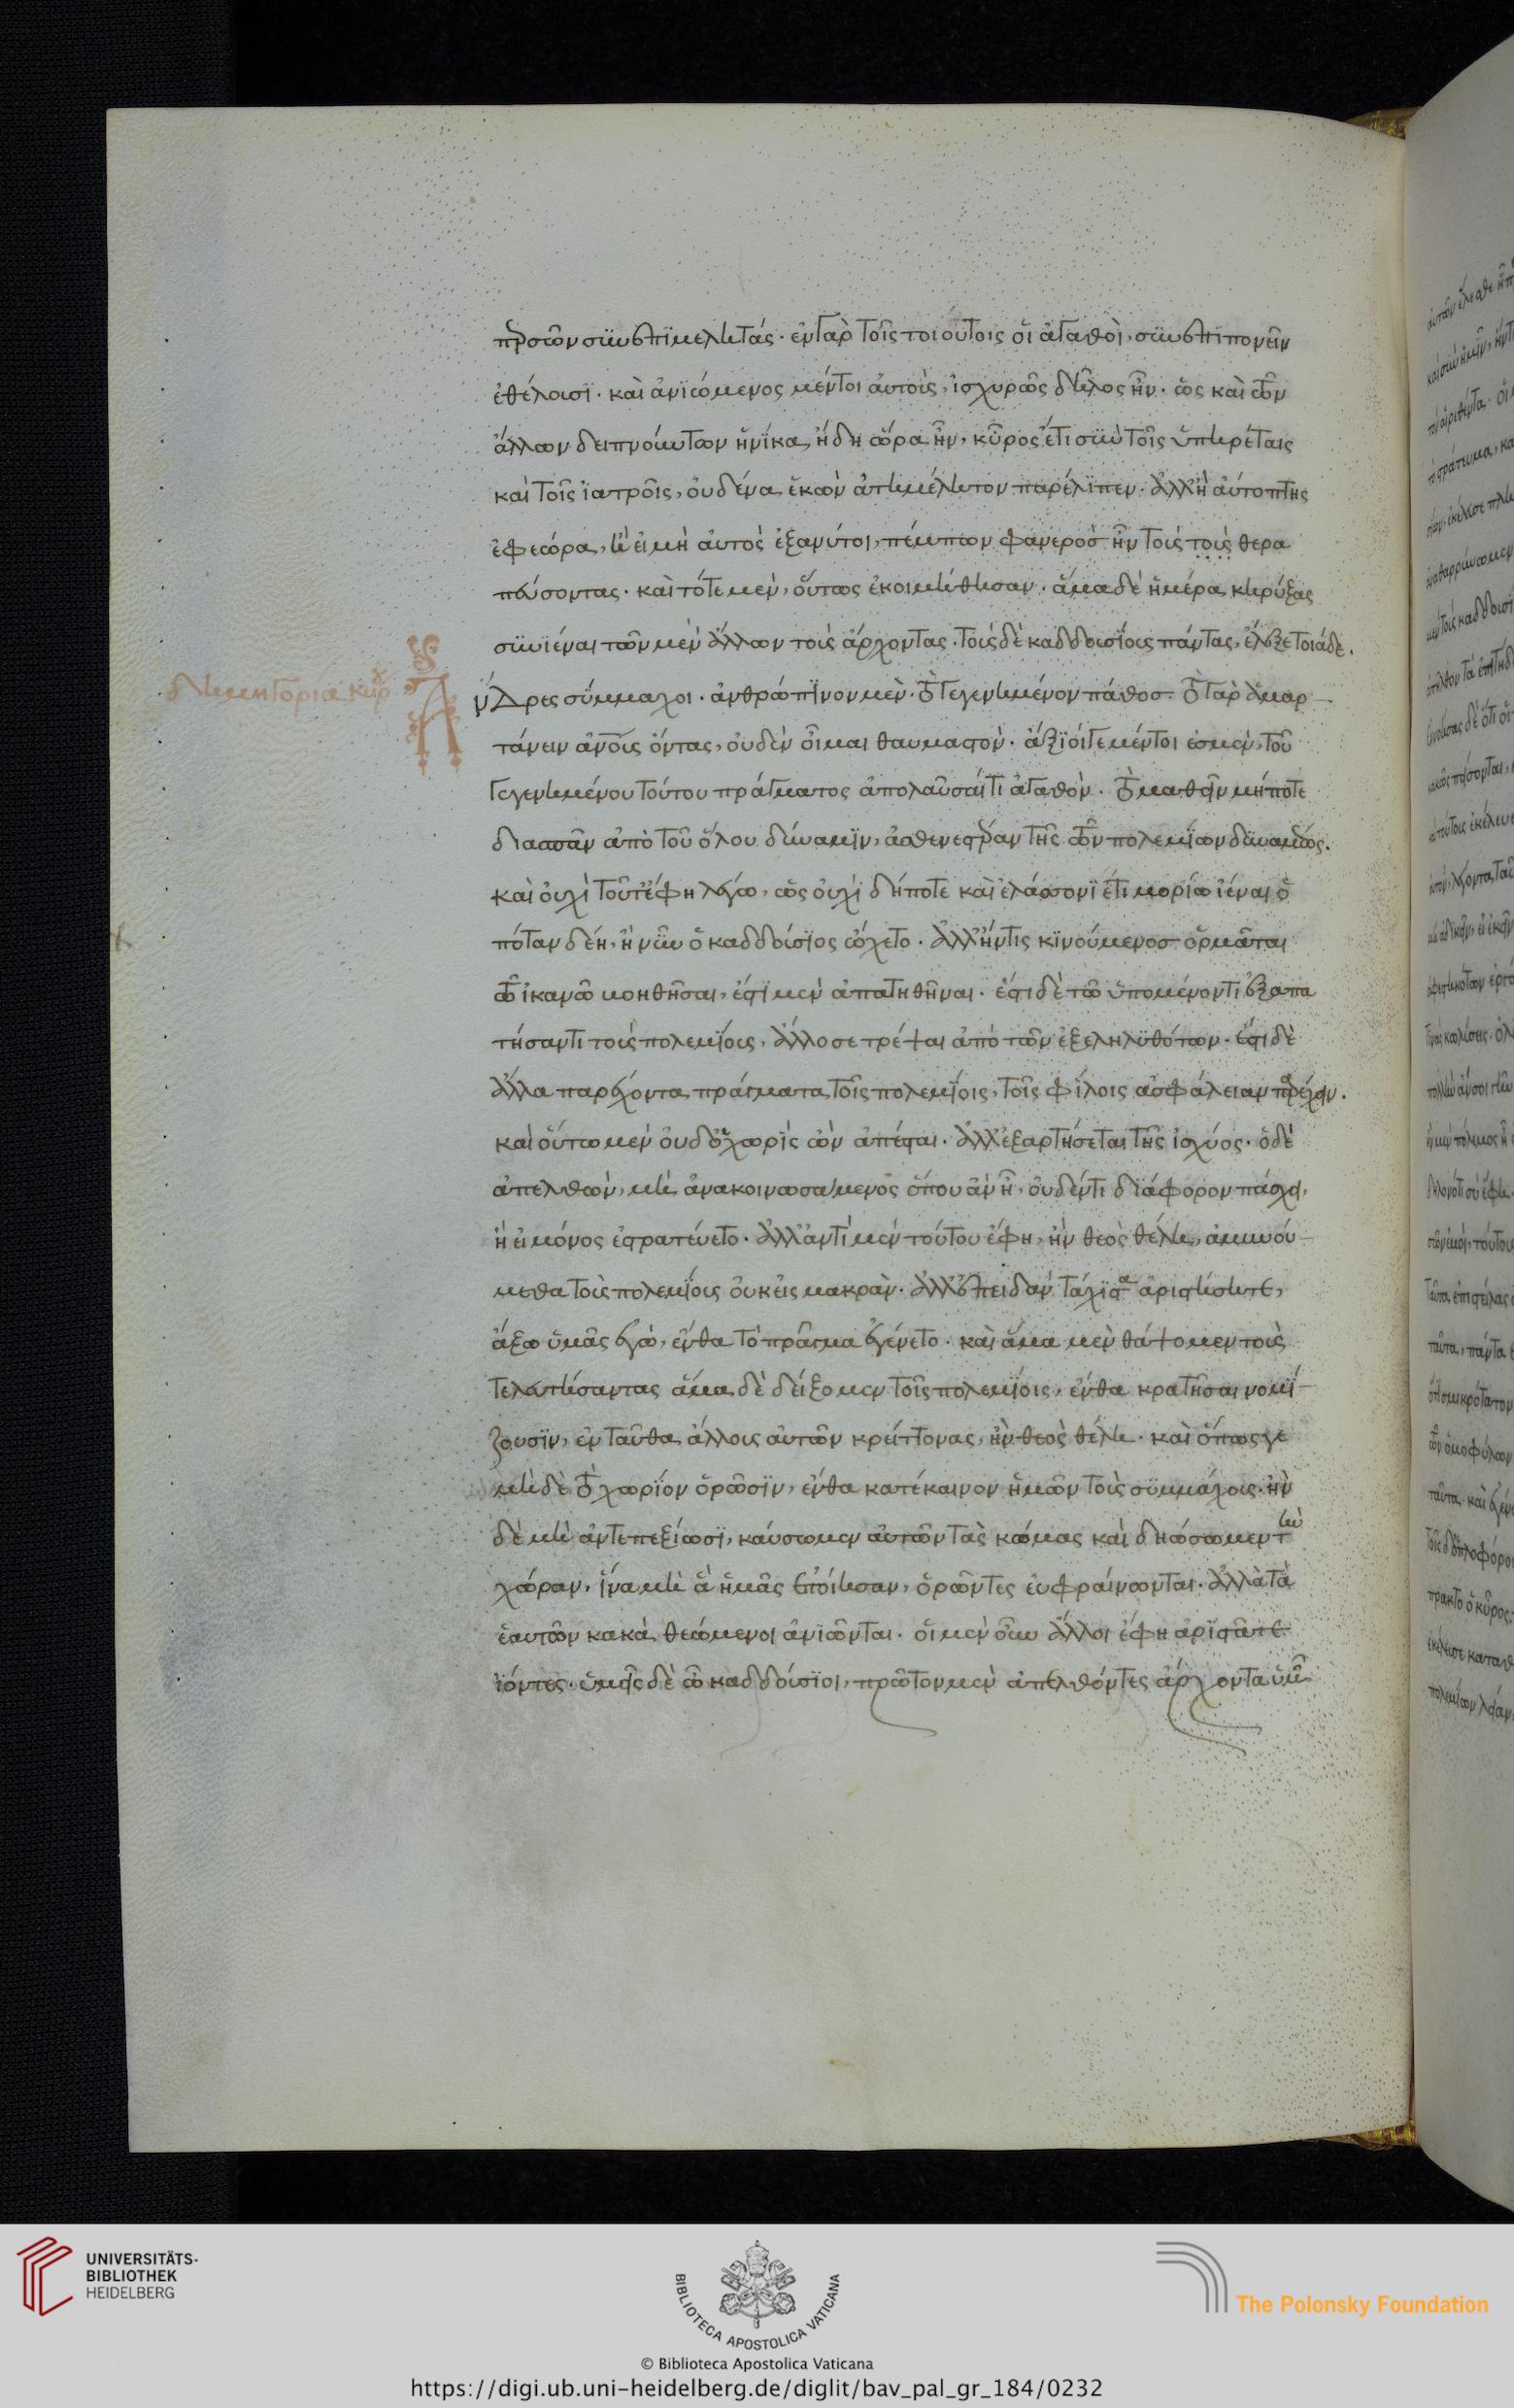 περσῶν συνεπιμελητάς. ἐν γὰρ τοῖς τοιούτοις οἱ ἀγαθοὶ, συνεπιπονεῖν
ἐθέλουσι. καὶ ἀνιώμενος μέντοι αὐτοὺς, ἰσχυρῶς δῆλος ἦν. ὡς καὶ τῶν
ἄλλων δειπνούντων ἡνίκα, ἤδη ὥρα ἦν, κῦρος ἔτι σὺν τοῖς ὑπηρέταις
καὶ τοῖς ἰατροῖς, οὐδένα ἑκὼν ἀτημέλητον παρέλιπεν. ἀλλ' ἢ αὐτόπτης
ἐφεώρα, ἢ εἰ μὴ αὐτὸς ἐξανύτοι, πέμπων φανερὸσ ἦν τοὺς τοὺς θερα
πεύσοντας. καὶ τότε μὲν, οὕτως ἐκοιμήθησαν. ἅμα δὲ ἡμέρα κηρύξας
συνιέναι τῶν μὲν ἄλλων τοὺς ἄρχοντας. τοὺς δὲ καδδουσίους πάντας, ἔλεξε τοιάδε.
δημηγορία κύρου
Ἄνδρες σύμμαχοι. ἀνθρώπινον μὲν. τὸ γεγενημένον πάθοσ. τὸ γὰρ ἁμαρ
τάνειν ἀνους ὄντας, οὐδὲν οἶμαι θαυμαστὸν. ἄξιοί γε μέντοι ἐσμὲν, τοῦ
γεγενημένου τούτου πράγματος ἀπολαῦσαί τι ἀγαθὸν. τὸ μαθεῖν μήποτε
διασπᾶν ἀπὸ τοῦ ὅλου δύναμιν, ἀσθενεστέραν τῆς τῶν πολεμίων δυνάμεως.
καὶ οὐχὶ τοῦτ' ἔφη λέγω, ὡς οὐχὶ δήποτε καὶ ἐλάσσονι ἔτι μορίω ἰέναι ὁ
πόταν δέη, ἢ νῦν ὁ καδδούσιος ὤχετο. ἀλλ' ἤν τις κινούμενοσ ὁρμᾶται
τῶ ἱκανῶ μοηθῆσαι, ἔστι μὲν ἀπατηθῆναι. ἔστι δὲ τῶ ὑπομένοντι ἐξαπα
τήσαντι τοὺς πολεμίους, ἄλλοσε τρέψαι ἀπὸ τῶν ἐξεληλυθότων. ἔστι δὲ
ἄλλα παρέχοντα πράγματα τοῖς πολεμίοις, τοῖς φίλοις ἀσφάλειαν παρέχειν.
καὶ οὕτω μὲν οὐδ' ὁ χωρὶς ὢν ἀπέσται. ἀλλ' ἐξαρτήσεται τῆς ἰσχύος. ὁ δὲ
ἀπελθὼν, μὴ ἀνακοινωσάμενος ὅπου ἂν ἦ, οὐδέν τι διάφορον πάσχει,
ἢ εἰ μόνος ἐστρατεύετο. ἀλλ' ἀντὶ μὲν τούτου ἔφη, ἢν θεὸς θέλη, ἀμυνού
μεθα τοὺς πολεμίους οὐκ εἰς μακρὰν. ἀλλ' ἐπειδὰν τάχιστα ἀριστήσητε,
ἄξω ὑμᾶς ἐγὼ, ἔνθα τὸ πρᾶγμα ἐγένετο. καὶ ἅμα μὲν θάψομεν τοὺς
τελευτήσαντας ἅμα δὲ δείξομεν τοῖς πολεμίοις, ἔνθα κρατῆσαι νομί
ζουσιν, ἐνταῦθα ἄλλους αὐτῶν κρείττονας, ἢν θεὸς θέλη. καὶ ὅπως γε
μὴ δὲ τὸ χωρίον ὁρῶσιν, ἔνθα κατέκαινον ἡμῶν τοὺς συμμάχους. ἢν
δὲ μὴ ἀντεπεξίωσι, καύσωμεν αὐτῶν τὰς κώμας καὶ δηώσωμεν τὴν
χώραν, ἵνα μὴ ἃ ἡμᾶς ἐποίησαν, ὁρῶντες εὐφραίνωνται. ἀλλὰ τὰ
ἑαυτῶν κακὰ θεώμενοι ἀνιῶνται. οἱ μὲν οὖν ἄλλοι ἔφη ἀριστᾶτε
ἰόντες. ὑμεῖς δὲ ὦ καδδούσιοι, πρῶτον μὲν ἀπελθόντες ἄρχοντα ὑμῶν
UNIVERSITÄTS-
BIBLIOTHEK
HEIDELBERG
BIBLIOTECA APOSTOLICA VATICANA
The Polonsky Foundation
© Biblioteca Apostolica Vaticana
https://digi.ub.uni-heidelberg.de/diglit/bav_pal_gr_184/0232